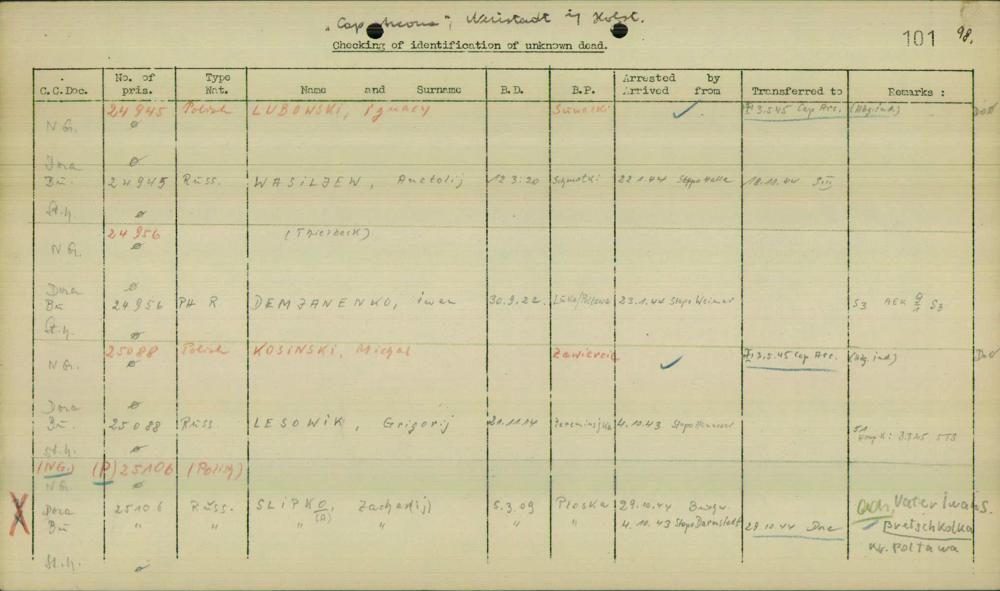 "Cap Arcona", Neustadt i/ Holst.
101 98.
Checking of identification of unknown dead.
C.C.Doc. No. of pris. Type Nat. Name and Surname B.D. B.P. Arrested by Arrived from Transferred to Remarks :
24945 Polish LUBOWSKI, Ignacy Suwalki ✓ 3.5.45 Cap Arc.
N G. ø
Dora ø
Bu. 24945 Russ. WASILJEW, Anatolij 12.3.20 22.1.44 Stapo Halle 18.11.44 SIII
St.h. ø
24956 (Thierbeck)
N G. ø
Dora ø
Bu 24956 PH R DEMJANENKO, iwan 30.9.22. Luka/Poltawa 23.1.44 Stapo Weimar S3
St.h. ø
25088 Polish KOSINSKI, Michal Zawiercie ✓ 3.5.45 Cap Arc.
N G. ø
Dora ø
Bu. 25088 Russ. LESOWIK, Grigorij 21.11.14 4.10.43 Stapo Hannover
St.h. ø
(NG.) (P) 25106 (Polish)
N G. ø
X Dora 25106 Russ. SLIPKO, Zacharij 5.3.09 Ploska 29.10.44 Buchw. Vater iwan S.
Bu " " (A) " " " 4.10.43 Stapo Darmstadt 28.10.44 Bretschkolka
Kr. Poltawa
St.h. ø